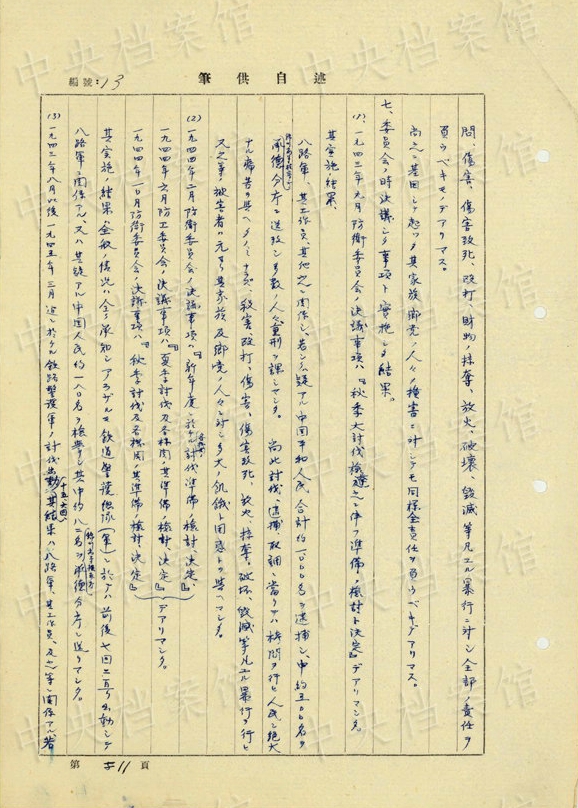 編號:13
述自供筆
問、傷害、傷害致死、殴打、財物ノ掠奪、放火、破壊、毀滅等凡ユル暴行ニ対シ全部ノ責任ヲ
負ウベキモノデアリマス。
尚之ニ基因シテ起ツタ其家族郷党ノ人々ノ損害ニ対シテモ同様全責任ヲ負ウベキデアリマス。
七、委員会ノ時決議シタ事項ト実施シタ結果。
(1) 一九四三年九月防衛委員会ノ決議事項ハ『秋季大討伐 之ニ伴フ準備ノ検討ト決定』デアリマシタ。
其実施ノ結果
八路軍、其工作員、其他之ニ関係シ、若シクハ疑アル中国平和人民、合計約一〇〇名ヲ逮捕シ、中約五〇名ヲ
承徳分庁ニ送致シ多数ノ人々ニ重刑ヲ課シマシタ。尚此討伐、逮捕、取調ニ当リテハ拷問ヲ行ヒ人民ニ絶大
ナル痛苦ヲ与ヘタノミナラズ、殺害、殴打、傷害、傷害致死、放火、掠奪、破壊、毀滅等凡ユル暴行ヲ行ヒ
又之等ノ被害者ハ元ヨリ其家族及郷党ノ人々ニ対シ多大ノ飢餓ト困 トヲ与ヘマシタ。
(2) 一九四四年二月防衛委員会ノ決議事項ハ『新年度ニ於ケル討伐準備ノ検討、決定』
一九四四年六月防工委員会ノ決議事項ハ『夏季討伐及各機関ノ其準備ノ検討、決定』
一九四四年一〇月防衛委員会ノ決議事項ハ『秋季討伐及各機関ノ其準備ノ検討、決定』 デアリマシタ。
其実施ノ結果ノ全般ノ情況ハ全ク承知シアラザルモ鉄道警護総隊(軍)ニ於テハ前後七回ニ亘リ出動シテ
八路軍ノ関係アル、又ハ其疑アル中国人民約一八〇名ヲ検挙シ其中約八二名ヲ承徳分庁ニ送リマシタ。
(3) 一九四三年八月以後一九四五年三月迄ニ於ケル鉄路警護軍ノ討伐出動ハ 其結果ハ八路軍、其工作員、及之等ニ関係アル、若
第 511 頁
中央档案馆